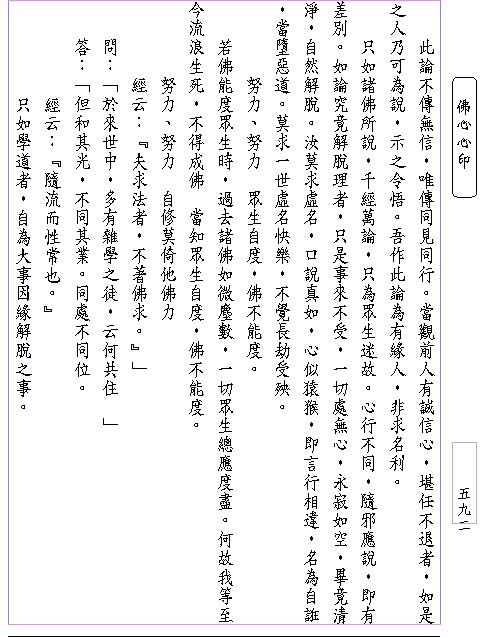 佛心心印
五九二
此論不傳無信，唯傳同見同行。當觀前人有誠信心，堪任不退者，如是
之人乃可為說，示之令悟。吾作此論為有緣人，非求名利。
只如諸佛所說，千經萬論，只為眾生迷故。心行不同，隨邪應說，即有
差別。如論究竟解脫理者，只是事來不受，一切處無心，永寂如空，畢竟清
淨，自然解脫。汝莫求虛名，口說真如，心似猿猴，即言行相違，名為自誑
，當墮惡道。莫求一世虛名快樂，不覺長劫受殃。
努力、努力　眾生自度，佛不能度。
若佛能度眾生時，過去諸佛如微塵數，一切眾生總應度盡。何故我等至
今流浪生死，不得成佛　當知眾生自度，佛不能度。
努力、努力　自修莫倚他佛力
經云：『夫求法者，不著佛求。』」
問：「於來世中，多有雜學之徒，云何共住　」
答：「但和其光，不同其業。同處不同位。
經云：『隨流而性常也。』
只如學道者，自為大事因緣解脫之事。